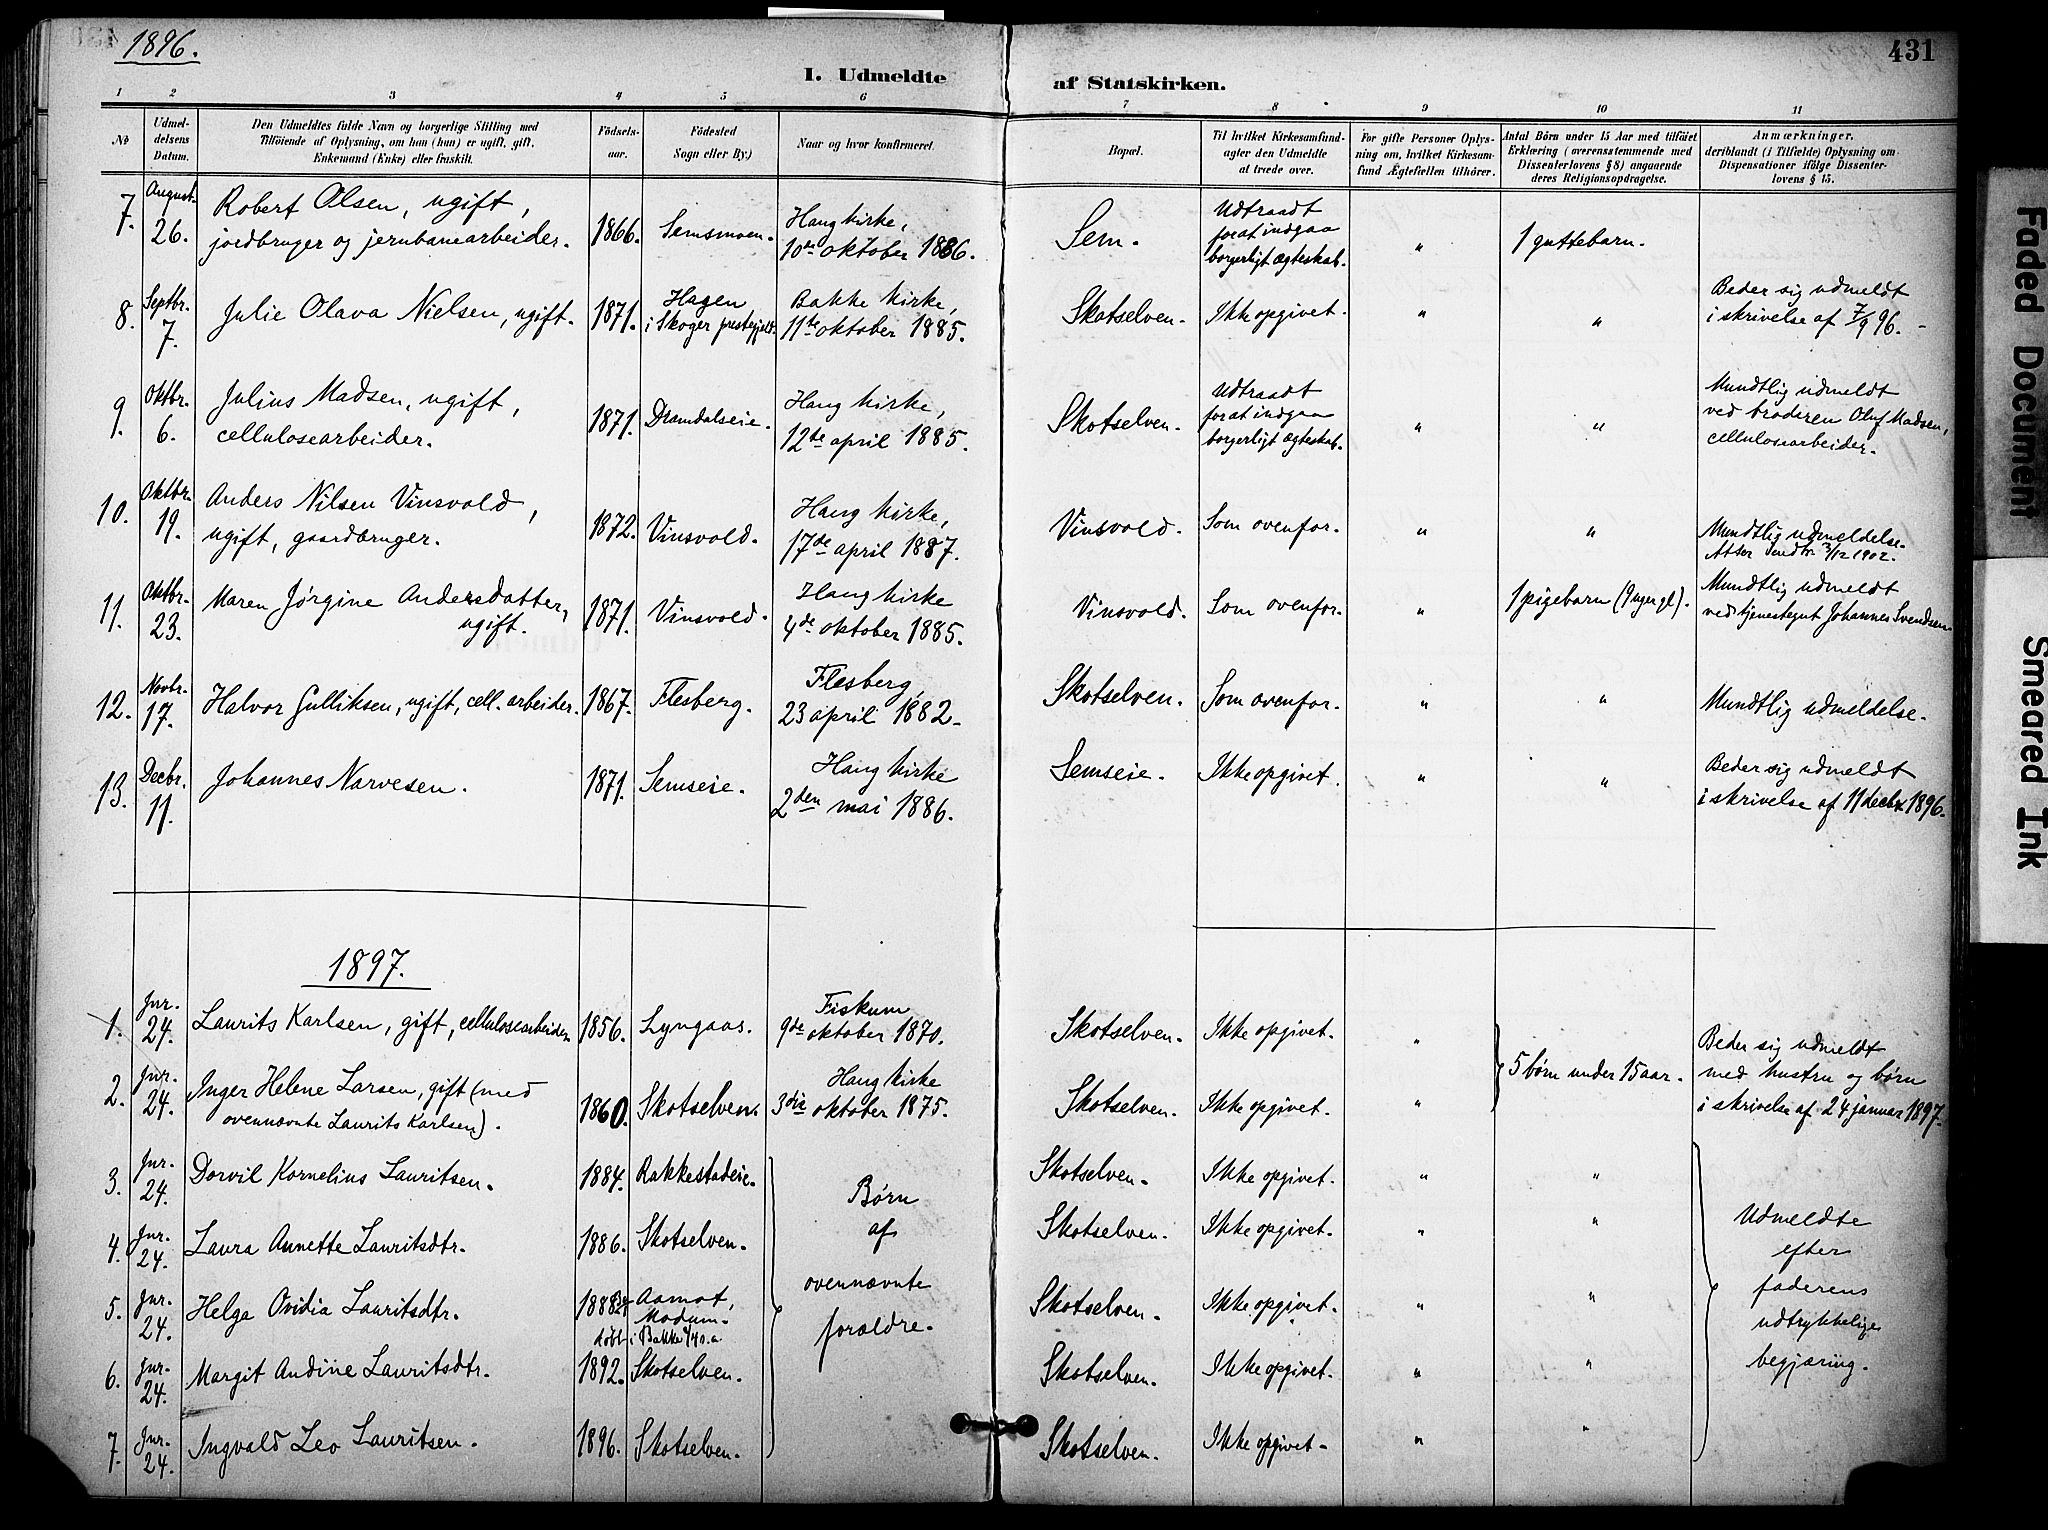 1896.
431
I. Udmeldte af Statskirken.
1 2 3 4 5 6 7 8 9 10 11
No
Udmel-
delsens
Datum.
Den Udmeldtes fulde Navn og borgerlige Stilling med
Tilføiende af Oplysning, om han (hun) er ugift, gift,
Enkemand (Enke) eller fraskilt.
Fødsels-
aar.
Fødested
Sogn eller By.)
Naar og hvor konfirmeret.
Bopæl.
Til hvilket Kirkesamfund-
agter den Udmeldte
at træde over.
For gifte Personer Oplys-
ning om, hvilket Kirkesam-
fund Ægtefællen tilhører.
Antal Børn under 15 Aar med tilføiet
Erklæring (overensstemmende med
Dissenterlovens § 8) angaaende
deres Religionsopdragelse.
Anmærkninger,
deriblandt (i Tilfælde) Oplysning om
Dispensationer ifølge Dissenter-
lovens § 15.
7.
August.
26.
Robert Olsen, ugift,
jordbruger og jernbanearbeider.
1866.
Semsmoen.
Haug kirke,
10de oktober 1886.
Sem.
Udtraadt
forat indgaa
borgerligt ægteskab.
"
1 guttebarn.
8.
Septbr.
7.
Julie Olava Nielsen, ugift.
1871.
Hagen
i Skoger prestegjeld.
Bakke kirke,
11te oktober 1885.
Skotselven.
Ikke opgivet.
"
"
Beder sig udmeldt
i skrivelse af 7/9 96. -
9.
Oktbr.
6.
Julius Madsen, ugift,
cellulosearbeider.
1871.
Dramdalseie.
Haug kirke,
12te april 1885.
Skotselven.
Udtraadt
forat indgaa
borgerligt ægteskab.
"
"
Mundtlig udmeldt
ved broderen Oluf Madsen,
cellulosearbeider.
10.
Oktbr.
19.
Anders Nilsen Vinsvold,
ugift, gaardbruger.
1872.
Vinsvold.
Haug kirke,
17de april 1887.
Vinsvold.
Som ovenfor.
"
"
Mundtlig udmeldelse.
Attest sendt 3/12 1902.
11.
Oktbr.
23.
Maren Jørgine Andersdatter,
ugift.
1871.
Vinsvold.
Haug kirke
4de oktober 1885.
Vinsvold.
Som ovenfor.
"
1 pigebarn (9 uger gl).
Mundtlig udmeldt
ved tjenestegut Johannes Svendsen.
12.
Novbr.
17.
Halvor Gulliksen, ugift, cell. arbeider.
1867.
Flesberg.
Flesberg,
23 april 1882.
Skotselven.
Som ovenfor.
"
"
Mundtlig udmeldelse.
13.
Decbr.
11.
Johannes Narvesen.
1871.
Semseie.
Haug kirke
2den mai 1886.
Semseie.
Ikke opgivet.
"
"
Beder sig udmeldt
i skrivelse af 11 decbr 1896.
1897.
1.
Jnr.
24.
Laurits Karlsen, gift, cellulosearbeider.
1856.
Lyngaas.
Fiskum
9de oktober 1870.
Skotselven.
Ikke opgivet.
"
5 børn under 15 aar.
Beder sig udmeldt
med hustru og børn
i skrivelse af 24 januar 1897.
2.
Jnr.
24.
Inger Helene Larsen, gift (med
ovennævnte Laurits Karlsen).
1860.
Skotselven.
Haug kirke
3die oktober 1875.
Skotselven.
Ikke opgivet.
"
3.
Jnr.
24.
Dorvil Kornelius Lauritsen.
1884.
Rakkestadeie.
Børn
af
ovennævnte
forældre.
Skotselven.
Ikke opgivet.
"
"
Udmeldte
efter
faderens
udtrykkelige
begjæring.
4.
Jnr.
24.
Laura Annette Lauritsdtr.
1886.
Skotselven.
Skotselven.
Ikke opgivet.
"
"
5.
Jnr.
24.
Helga Ovidia Lauritsdtr.
1888
Aamot,
Modum.
døbt i Bakke
Skotselven.
Ikke opgivet.
"
"
6.
Jnr.
24.
Margit Andine Lauritsdtr.
1892.
Skotselven.
Skotselven.
Ikke opgivet.
"
"
7.
Jnr.
24.
Ingvald Leo Lauritsen.
1896.
Skotselven.
Skotselven.
Ikke opgivet.
"
"
Faded Document
Smeared Ink